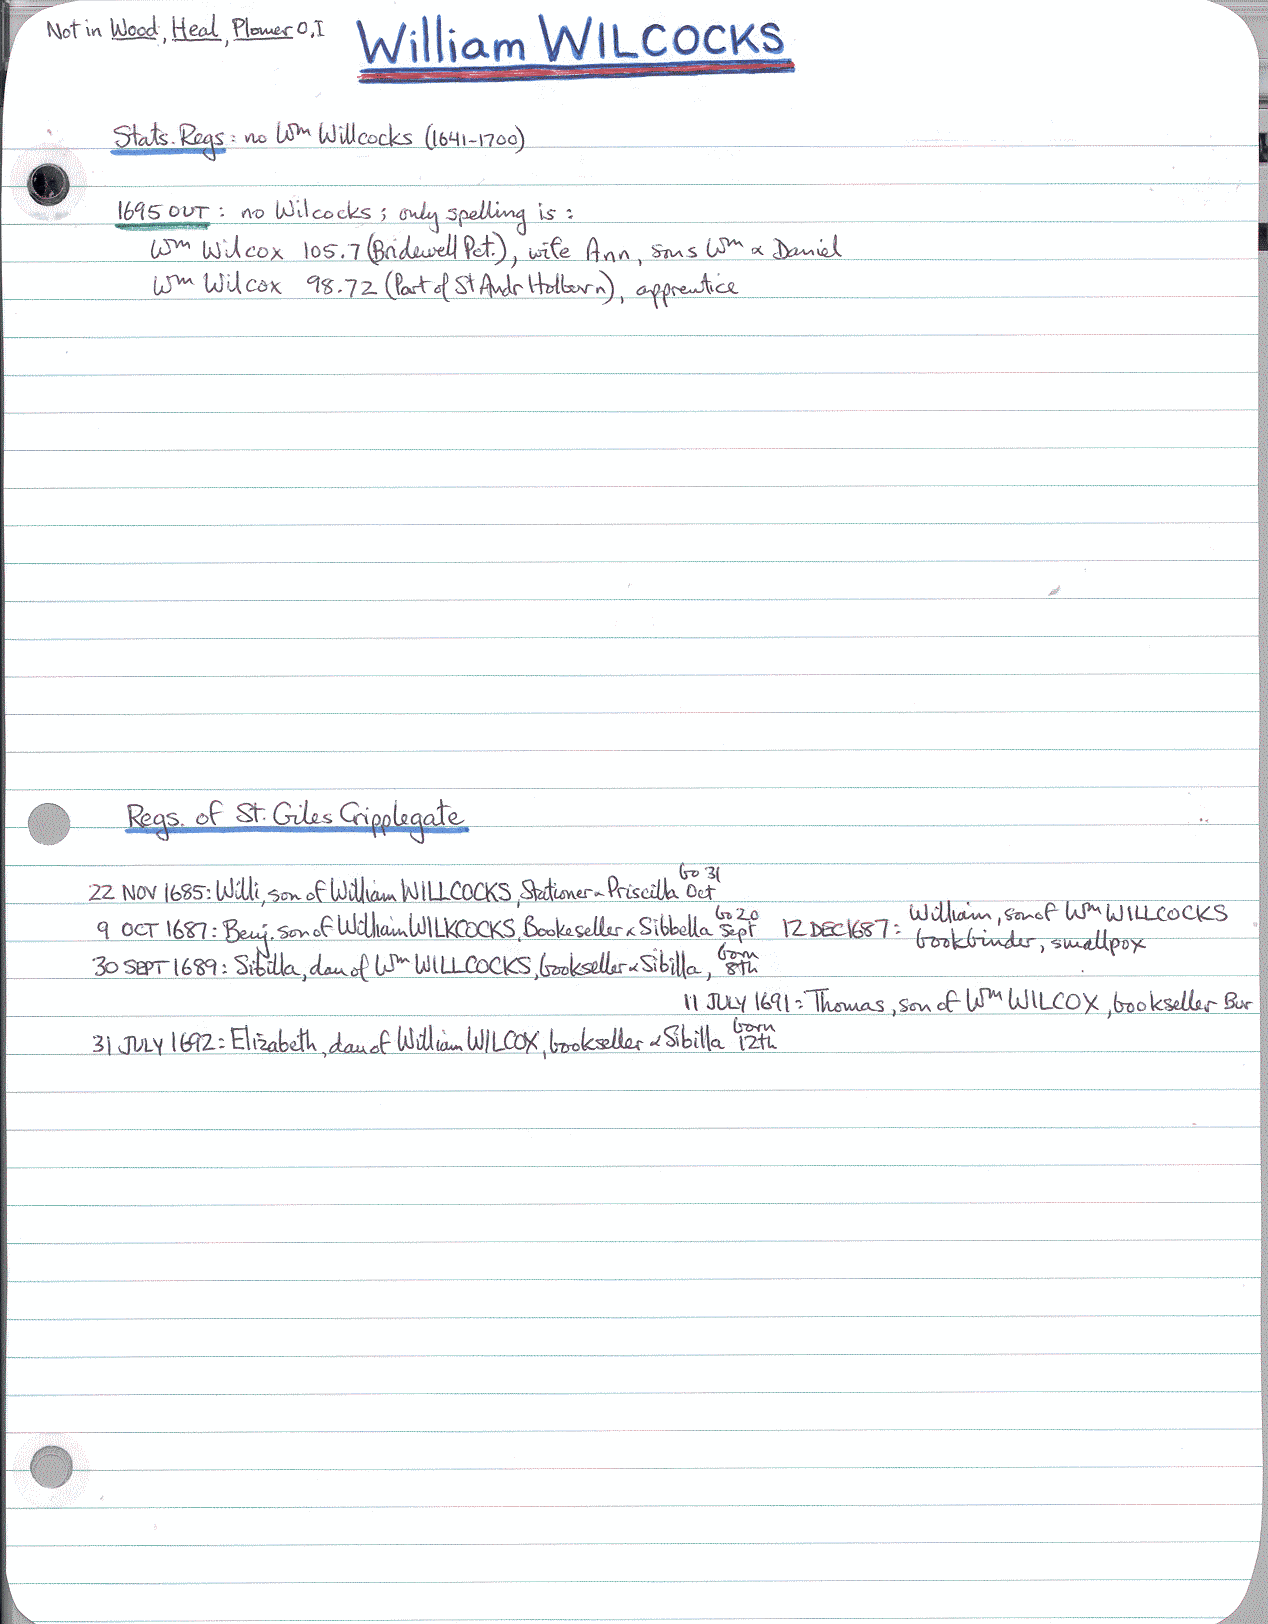 Not in Wood, Heal, Plomer O, I
William WILCOCKS
Stats. Regs: no Wm Willcocks (1641-1700)
1695 OUT: no Wilcocks; only spelling is:
Wm Wilcox 105.7 (Bridewell Pct.), wife Ann, sons Wm & Daniel
Wm Wilcox 98.72 (Part of St Andr Holborn), apprentice
Regs. of St. Giles Cripplegate
22 NOV 1685: Willi, son of William WILLCOCKS, Stationer & Priscilla bo 31 Oct
9 OCT 1687: Benj. son of William WILKCOCKS, Bookeseller & Sibbella bo 20 Sept 12 DEC 1687: William, son of Wm WILLCOCKS bookbinder, smallpox
30 SEPT 1689: Sibilla, dau of Wm WILLCOCKS, bookseller & Sibilla, born 8th
11 JULY 1691: Thomas, son of Wm WILCOX, bookseller Bur
31 JULY 1692: Elizabeth, dau of William WILCOX, bookseller & Sibilla born 12th